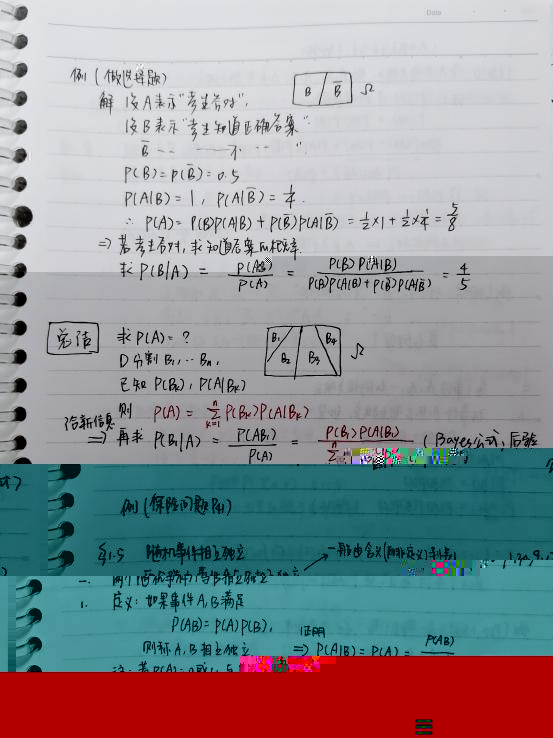 Date
例(做选择题)
B B̄ Ω
解 设A表示"考生答对",
设B表示"考生知道正确答案"
B̄ -- -- 不 -- "
P(B)=P(B̄)=0.5
P(A|B)=1, P(A|B̄)=1/4.
∴ P(A)=P(B)P(A|B)+P(B̄)P(A|B̄)=1/2×1+1/2×1/4=5/8
⇒ 若考生答对,求知道答案的概率.
求P(B|A) = P(AB)/P(A) = P(B)P(A|B)/P(B)P(A|B)+P(B̄)P(A|B̄) = 4/5
总结 求P(A)=?
B₁ B₂ B₃ B₄ Ω
① 分割B₁,…Bₙ,
已知P(Bₖ), P(A|Bₖ)
则 P(A)= Σₖ₌₁ⁿ P(Bₖ)P(A|Bₖ)
给新信息
⇒ 再求 P(B₁|A) = P(AB₁)/P(A) = P(B₁)P(A|B₁)/Σ (Bayes公式,后验
例(保险问题P41)
§1.5 随机事件相互独立
一般由含义
一.
1. 定义:如果事件A,B满足
P(AB)=P(A)P(B),
则称A,B相互独立
证明
⇒ P(A|B)=P(A)= P(AB)
注:若P(A)=0或1,